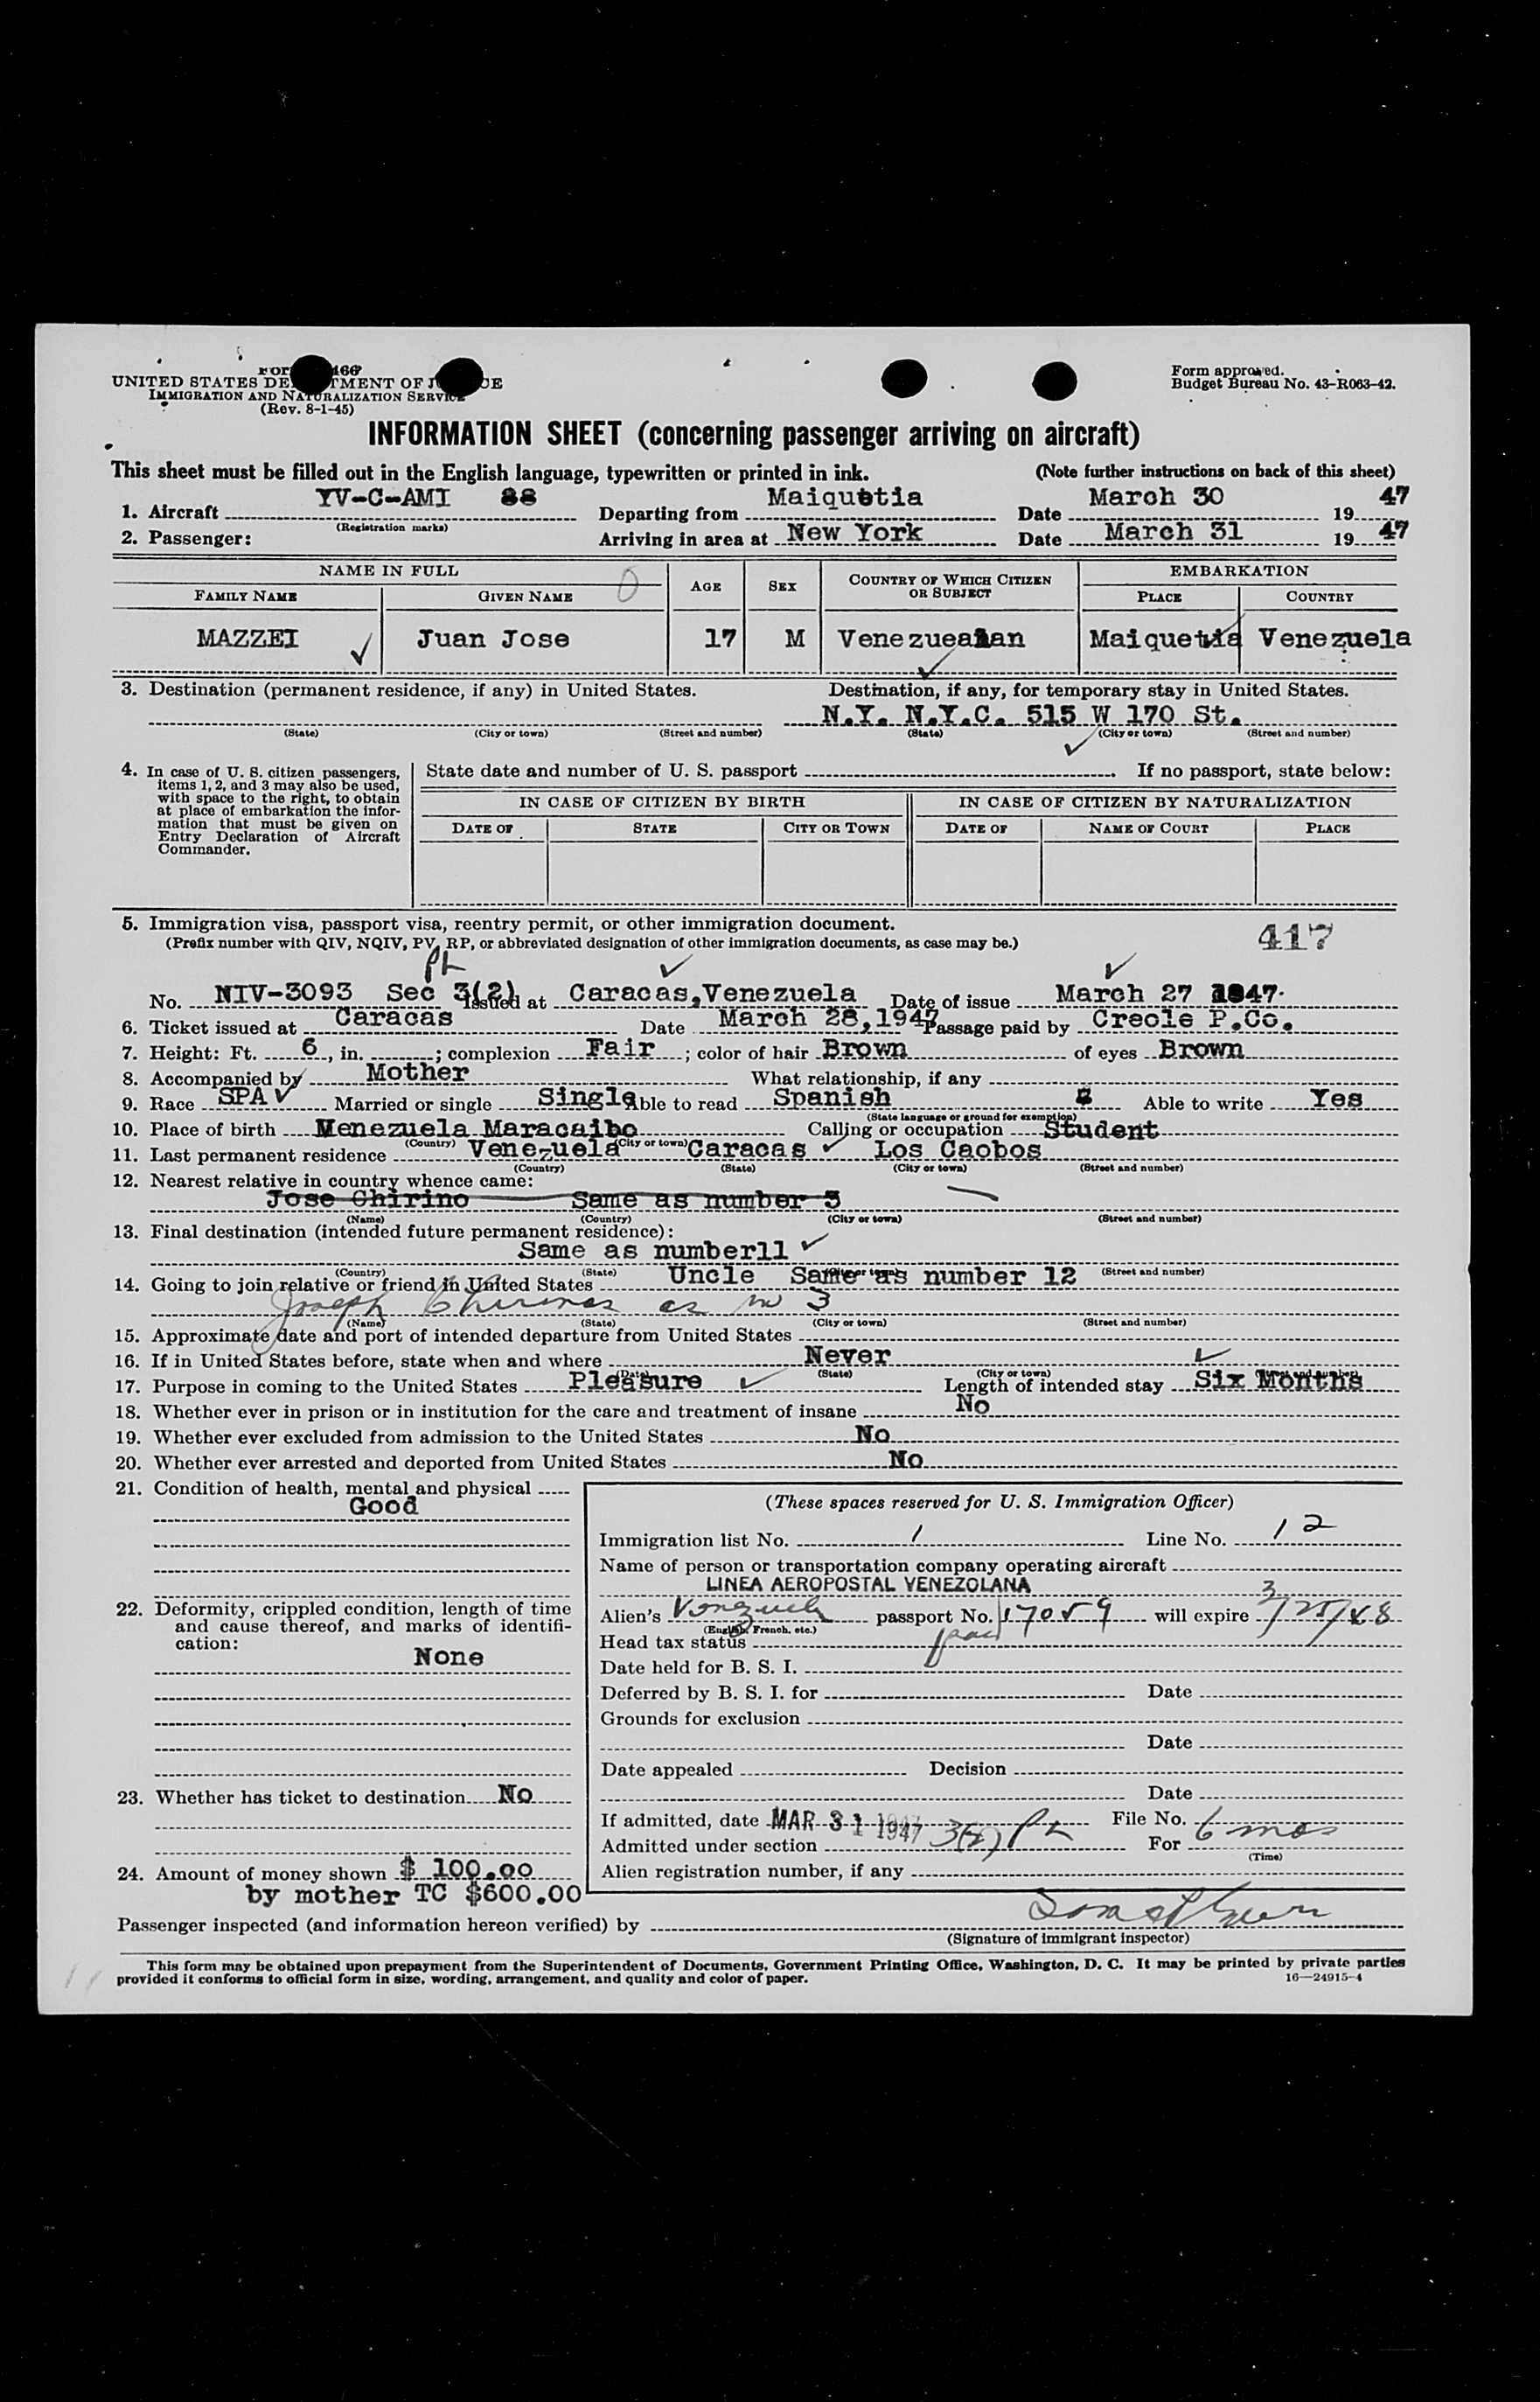 UNITED STATES DE TMENT OF J CE
IMMIGRATION AND NATURALIZATION SERVICE
(Rev. 8-1-45)
Form approved.
Budget Bureau No. 43-R063-42.
INFORMATION SHEET (concerning passenger arriving on aircraft)
This sheet must be filled out in the English language, typewritten or printed in ink. (Note further instructions on back of this sheet)
1. Aircraft YV-C-AMI 88 Departing from Maiquetia Date March 30 1947
(Registration marks)
2. Passenger: Arriving in area at New York Date March 31 1947
NAME IN FULL AGE SEX COUNTRY OF WHICH CITIZEN OR SUBJECT EMBARKATION
FAMILY NAME GIVEN NAME PLACE COUNTRY
MAZZEI Juan Jose 17 M Maiquetia Venezuela
3. Destination (permanent residence, if any) in United States. Destination, if any, for temporary stay in United States.
N.Y. N.Y.C. 515 W 170 St.
(State) (City or town) (Street and number) (State) (City or town) (Street and number)
4. In case of U. S. citizen passengers, items 1, 2, and 3 may also be used, with space to the right, to obtain at place of embarkation the information that must be given on Entry Declaration of Aircraft Commander.
State date and number of U. S. passport . If no passport, state below:
IN CASE OF CITIZEN BY BIRTH IN CASE OF CITIZEN BY NATURALIZATION
DATE OF STATE CITY OR TOWN DATE OF NAME OF COURT PLACE
5. Immigration visa, passport visa, reentry permit, or other immigration document.
(Prefix number with QIV, NQIV, PV, RP, or abbreviated designation of other immigration documents, as case may be.)
417
No. NIV-3093 Sec 3(2) Issued at Caracas, Venezuela Date of issue March 27 1947
6. Ticket issued at Caracas Date March 28, 1947 Passage paid by Creole P.Co.
7. Height: Ft. 6, in. ; complexion Fair ; color of hair Brown of eyes Brown
8. Accompanied by Mother What relationship, if any
9. Race SPA Married or single Single Able to read Spanish Able to write Yes
(State language or ground for exemption)
10. Place of birth Venezuela Maracaibo Calling or occupation Student
(Country) (City or town)
11. Last permanent residence Venezuela Caracas Los Caobos
(Country) (State) (City or town) (Street and number)
12. Nearest relative in country whence came:
Jose Chirino Same as number 3
(Name) (Country) (City or town) (Street and number)
13. Final destination (intended future permanent residence):
Same as number11
(Country) (State) (City or town) (Street and number)
14. Going to join relative or friend in United States Uncle Same as number 12
Joseph as no 3
(Name) (State) (City or town) (Street and number)
15. Approximate date and port of intended departure from United States
16. If in United States before, state when and where Never
(Date) (State) (City or town) (Street and number)
17. Purpose in coming to the United States Pleasure Length of intended stay Six Months
18. Whether ever in prison or in institution for the care and treatment of insane No
19. Whether ever excluded from admission to the United States No
20. Whether ever arrested and deported from United States No
21. Condition of health, mental and physical
Good
22. Deformity, crippled condition, length of time and cause thereof, and marks of identification:
None
23. Whether has ticket to destination No
24. Amount of money shown $ 100.00
by mother TC $600.00
(These spaces reserved for U. S. Immigration Officer)
Immigration list No. 1 Line No. 12
Name of person or transportation company operating aircraft
LINEA AEROPOSTAL VENEZOLANA
Alien's Venezuela passport No. 17059 will expire
(English, French, etc.)
Head tax status
Date held for B. S. I.
Deferred by B. S. I. for Date
Grounds for exclusion
Date
Date appealed Decision
Date
If admitted, date MAR 31 1947 File No.
Admitted under section 3(2) PL For 6 mos
(Time)
Alien registration number, if any
Passenger inspected (and information hereon verified) by
(Signature of immigrant inspector)
This form may be obtained upon prepayment from the Superintendent of Documents, Government Printing Office, Washington, D. C. It may be printed by private parties
provided it conforms to official form in size, wording, arrangement, and quality and color of paper. 16—24915-4